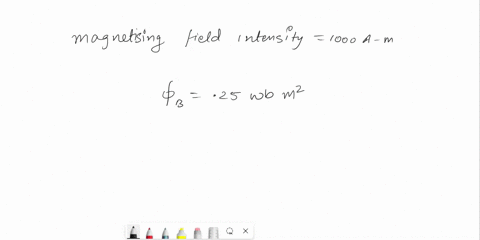 magnetising field intensity = 1000 A-m
ϕB = .25 wb m²